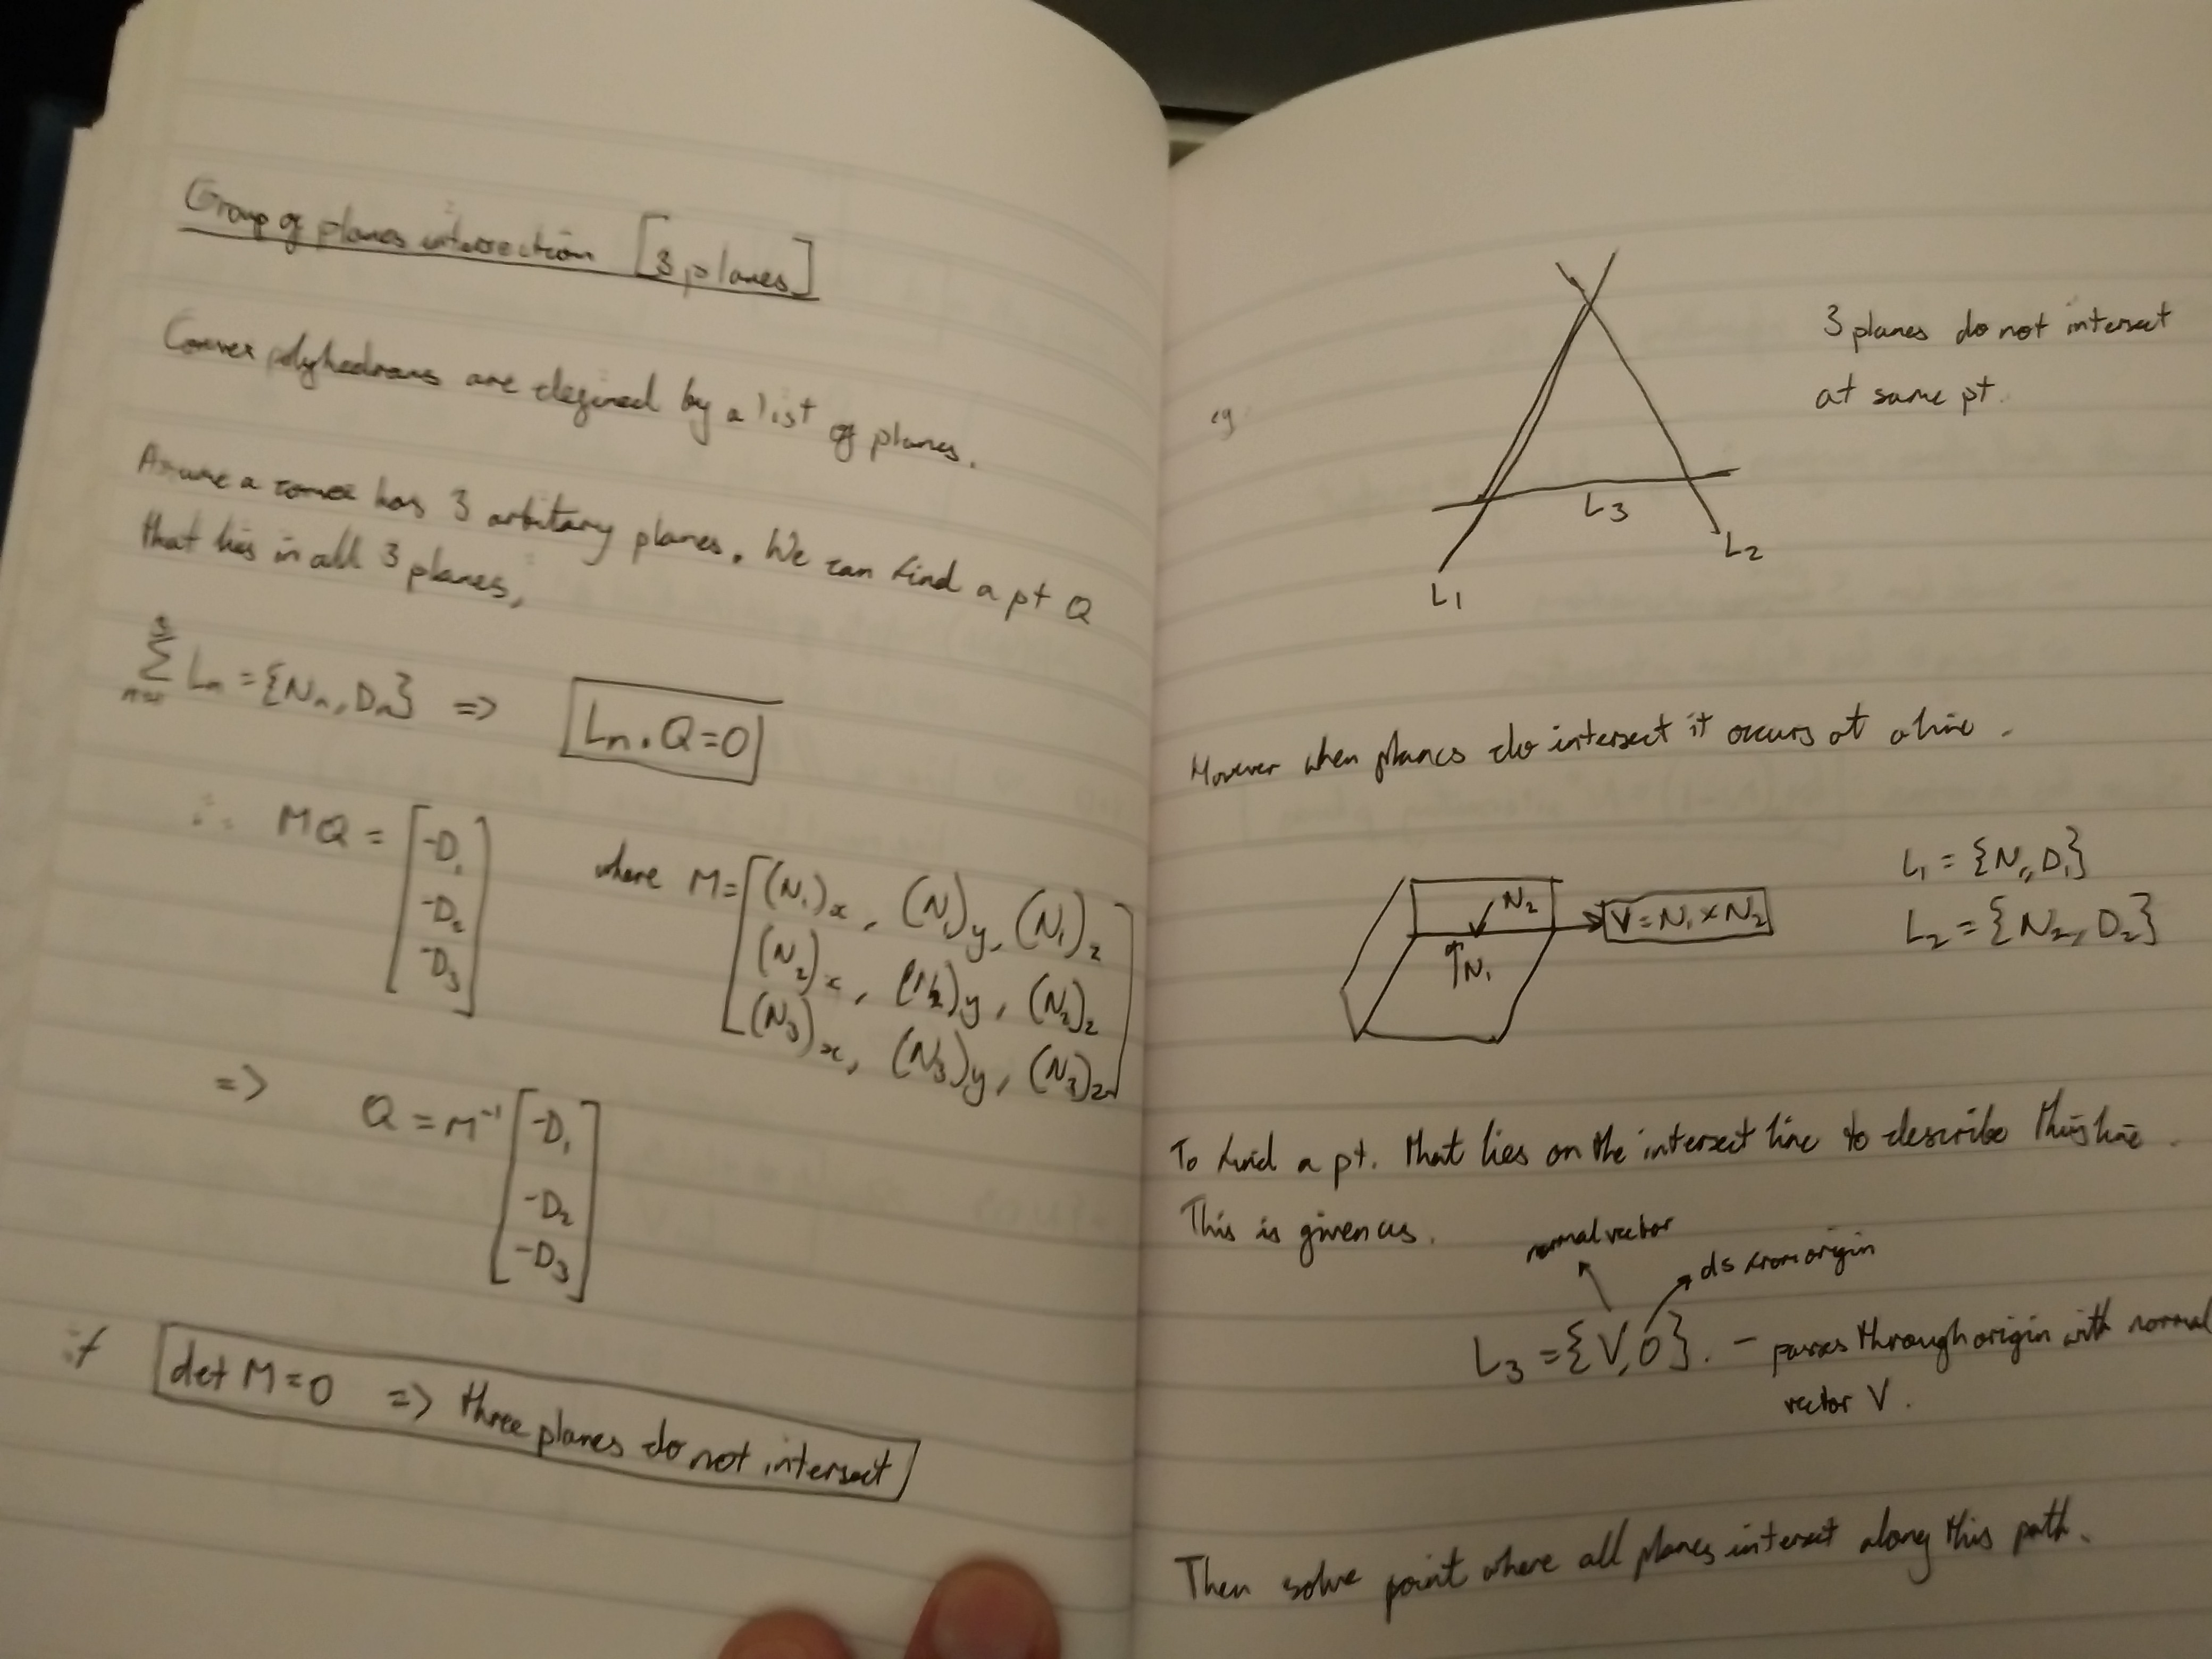 Group of planes intersection [3 planes]
Convex polyhedrons are defined by a list of planes.
Assume a convex has 3 arbitary planes. We can find a pt Q
that lies in all 3 planes,
3
Σ Ln = {Nn, Dn} => Ln . Q = 0
∴ MQ = [-D1 -D2 -D3] where M = [(N1)x, (N1)y, (N1)z
(N2)x, (N2)y, (N2)z
(N3)x, (N3)y, (N3)z]
=> Q = M⁻¹ [-D1
-D2
-D3]
if det M = 0 => three planes do not intersect
eg
3 planes do not intersect
at same pt.
L3
L2
L1
However when planes do intersect it occurs at a line.
L1 = {N1, D1}
N2 V = N1 × N2
L2 = {N2, D2}
N1
To find a pt. that lies on the intersect line to describe this line.
This is given as.
normal vector
ds from origin
L3 = {V, 0}. – passes through origin with normal
vector V.
Then solve point where all planes intersect along this path.